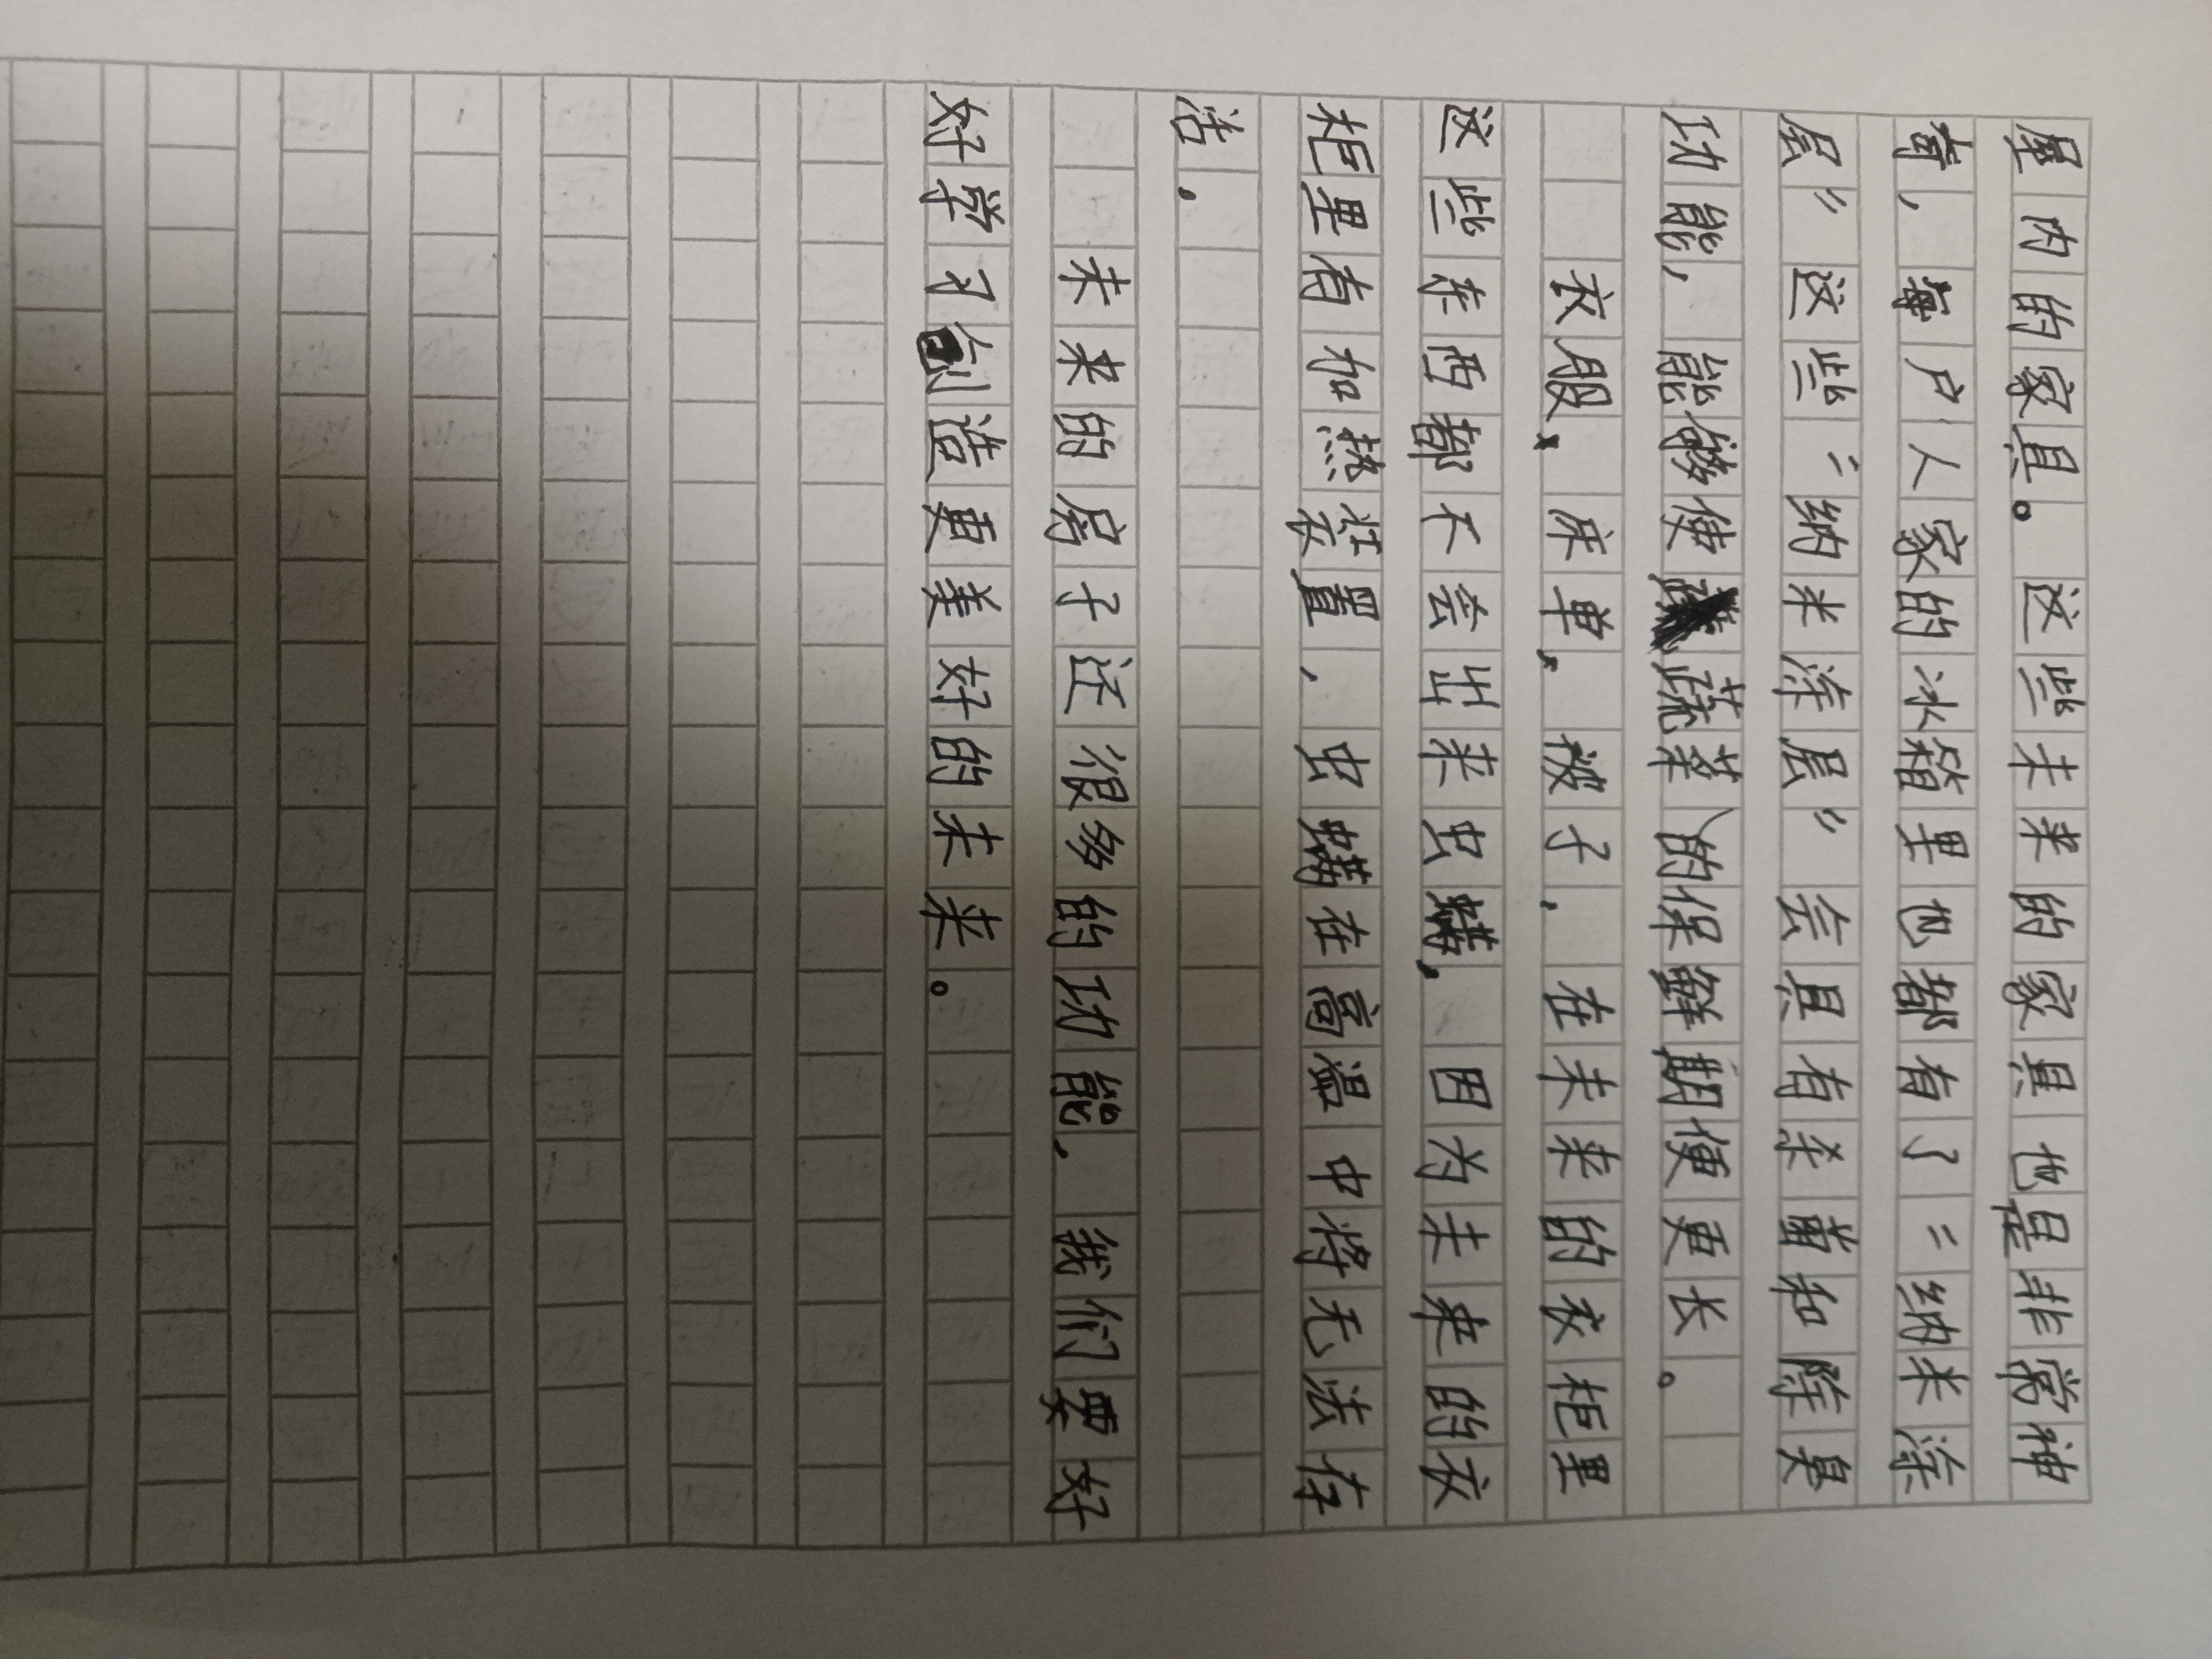 屋内的家具。这些未来的家具也是非常神
奇，每户人家的冰箱里也都有了“纳米涂
层”这些“纳米涂层”会具有杀菌和除臭
功能，能够使蔬菜的保鲜期便更长。
衣服、床单、被子，在未来的衣柜里
这些东西都不会出来虫螨，因为未来的衣
柜里有加热装置，虫螨在高温中将无法存
活．
未来的房子还很多的功能．我们要好
好学习创造更美好的未来。